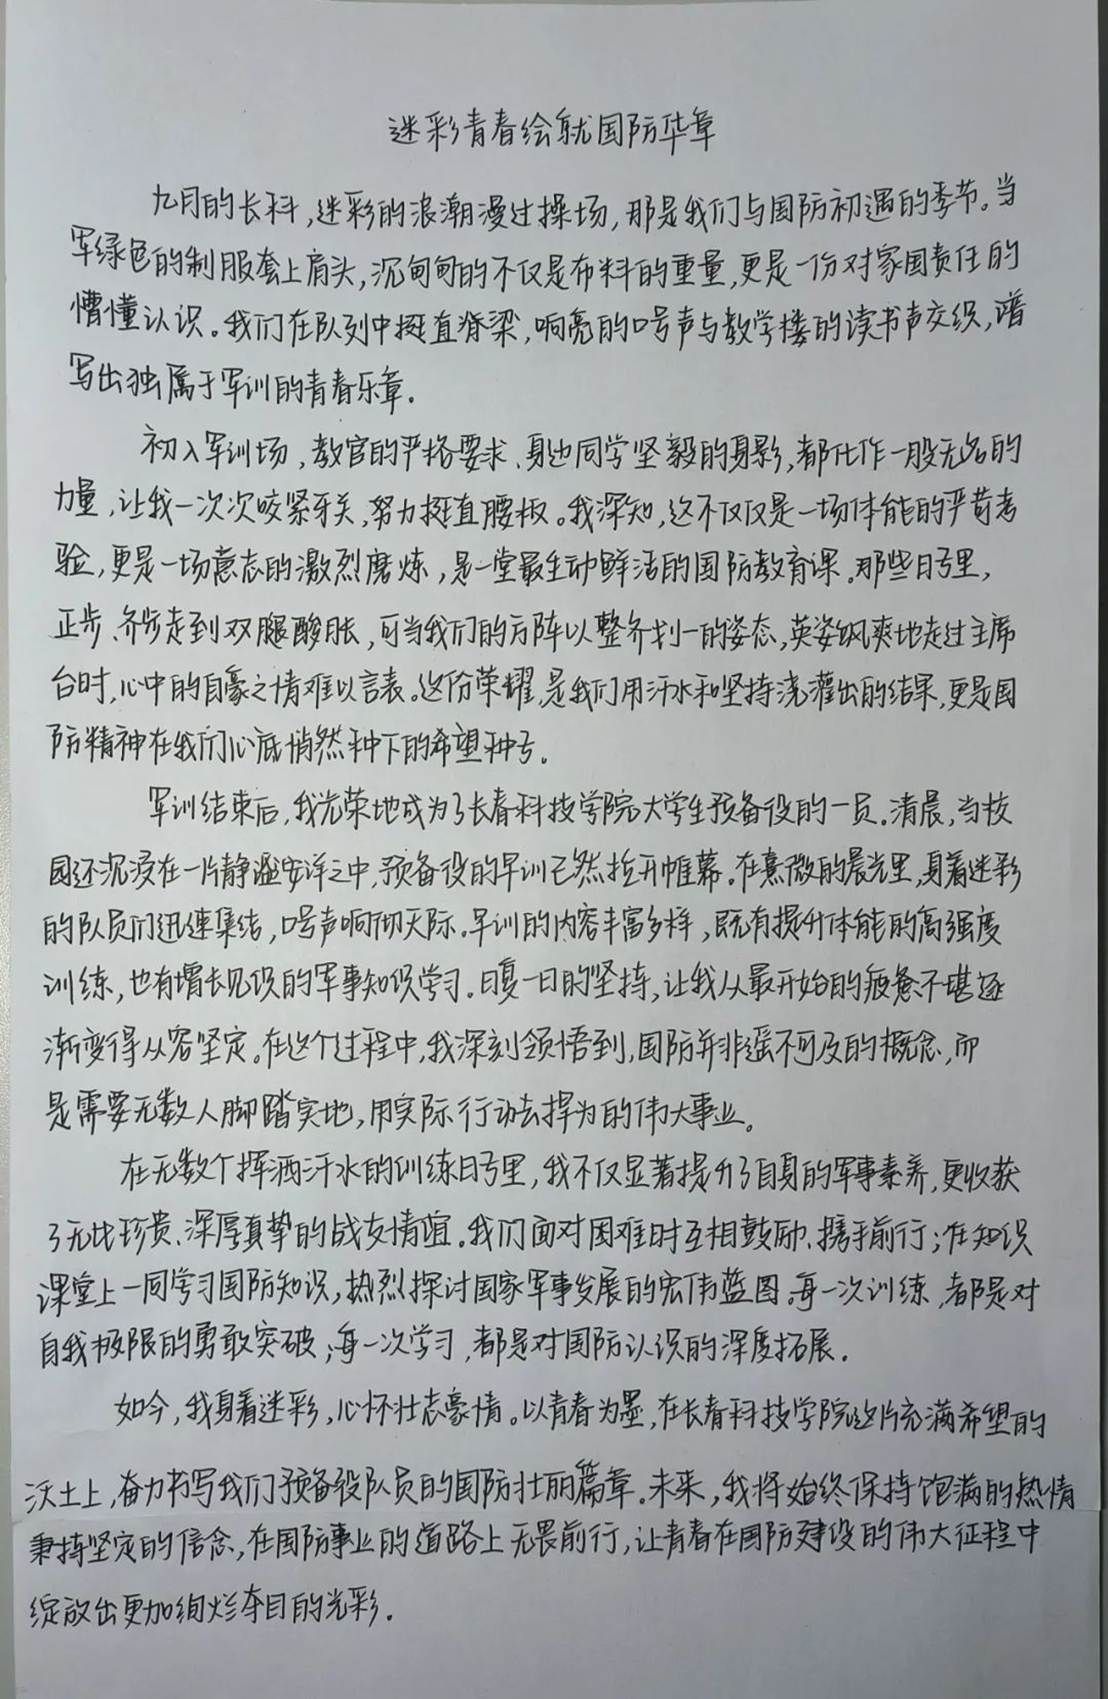 迷彩青春绘就国防华章
九月的长科,迷彩的浪潮漫过操场,那是我们与国防初遇的季节。当
军绿色的制服套上肩头,沉甸甸的不仅是布料的重量,更是一份对家国责任的
懵懂认识。我们在队列中挺直脊梁,响亮的口号声与教学楼的读书声交织,谱
写出独属于军训的青春乐章.
初入军训场,教官的严格要求、身边同学坚毅的身影,都化作一股无名的
力量,让我一次次咬紧牙关,努力挺直腰板。我深知,这不仅仅是一场体能的严苛考
验,更是一场意志的激烈磨炼,是一堂最生动鲜活的国防教育课.那些日子里,
正步、齐步走到双腿酸胀,可当我们的方阵以整齐划一的姿态,英姿飒爽地走过主席
台时,心中的自豪之情难以言表。这份荣耀,是我们用汗水和坚持浇灌出的结果,更是国
防精神在我们心底悄然种下的希望种子.
军训结束后,我光荣地成为了长春科技学院大学生预备役的一员.清晨,当校
园还沉浸在一片静谧安详之中,预备役的早训已然拉开帷幕.在熹微的晨光里,身着迷彩
的队员们迅速集结,口号声响彻天际.早训的内容丰富多样,既有提升体能的高强度
训练,也有增长见识的军事知识学习.日复一日的坚持,让我从最开始的疲惫不堪逐
渐变得从容坚定.在这个过程中,我深刻领悟到,国防并非遥不可及的概念,而
是需要无数人脚踏实地,用实际行动去捍卫的伟大事业。
在无数个挥洒汗水的训练日子里,我不仅显著提升了自身的军事素养,更收获
了无比珍贵、深厚真挚的战友情谊.我们面对困难时互相鼓励、携手前行;在知识
课堂上一同学习国防知识,热烈探讨国家军事发展的宏伟蓝图.每一次训练,都是对
自我极限的勇敢突破;每一次学习,都是对国防认识的深度拓展.
如今,我身着迷彩,心怀壮志豪情。以青春为墨,在长春科技学院这片充满希望的
沃土上,奋力书写我们预备役队员的国防壮丽篇章.未来,我将始终保持饱满的热情
秉持坚定的信念,在国防事业的道路上无畏前行,让青春在国防建设的伟大征程中
绽放出更加绚烂夺目的光彩.